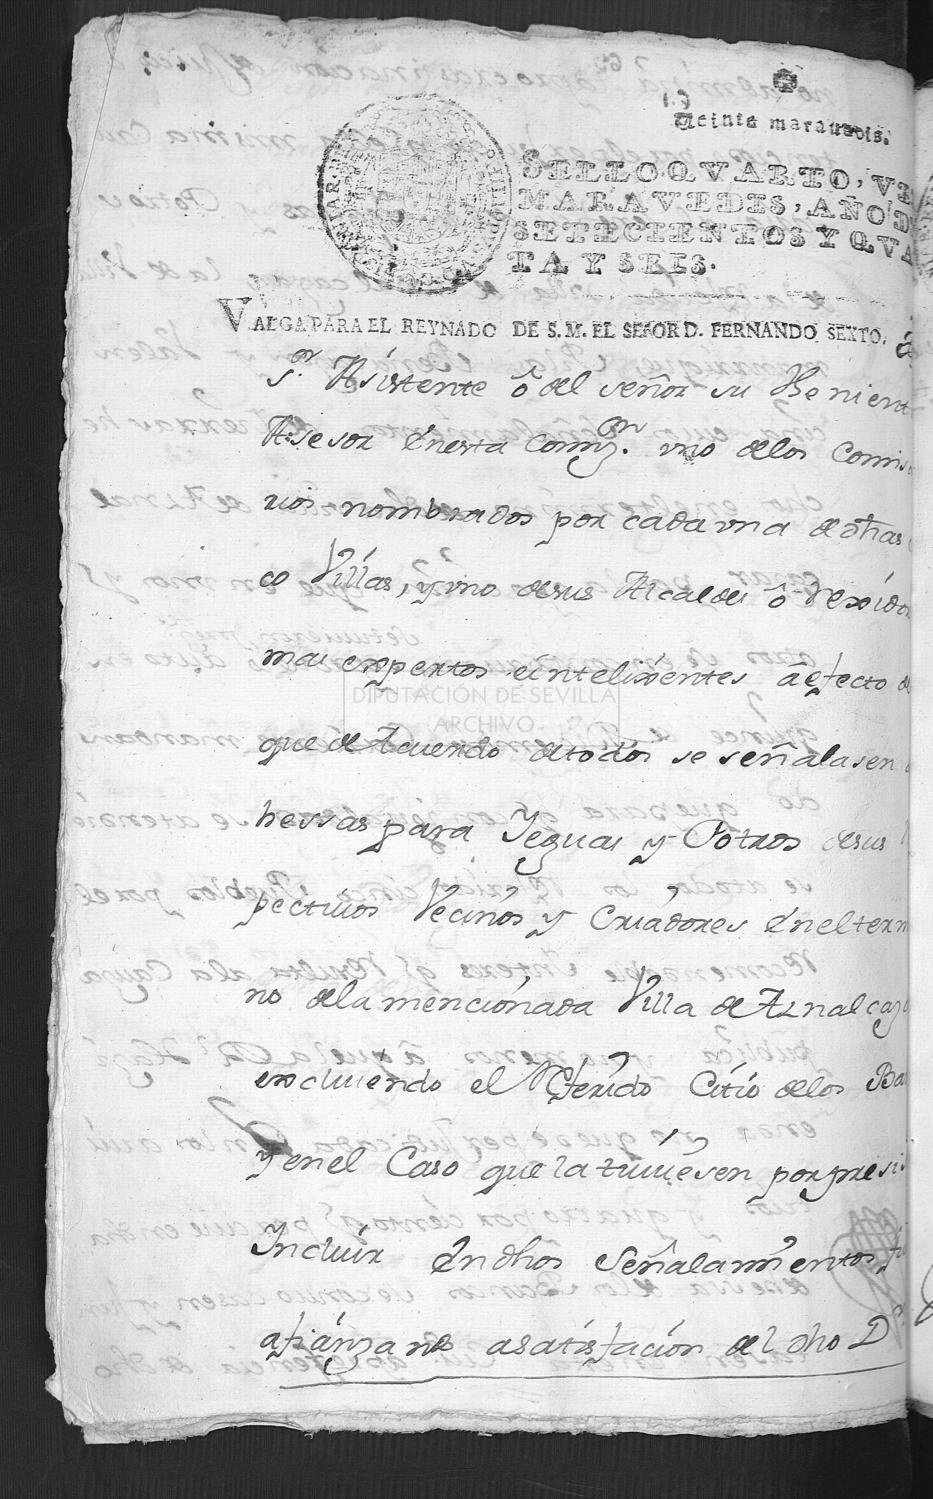 Veinte maravedis.
SELLO QVARTO, VEI
MARAVEDIS, AÑO D
SETECIENTOS Y QVA
TA Y SEIS.
VALGA PARA EL REYNADO DE S. M. EL SEñOR D. FERNANDO SEXTO.
Sr. Asistente ô del señor su Thenient
Asesor Enesta Comison. vno delos Comisa
rios nombrados por cada vna de dhas
co Villas, y vno desus Alcaldes ô Rexidor
mas expertos eintelixentes áefecto de
que de Acuerdo detodos se señalasen
hessas para Yeguas y Potros desus
pectivos Vecinos y Criadores Eneltermi
no dela mencionada Villa de Aznalcaz
excluiendo el Referido Citio delos Ba
y enel Caso que latuuiesen por presis
Incluir En dhos Señalamientos
afianzando asatisfacion del dho Dn
DIPUTACIÓN DE SEVILLA
ARCHIVO